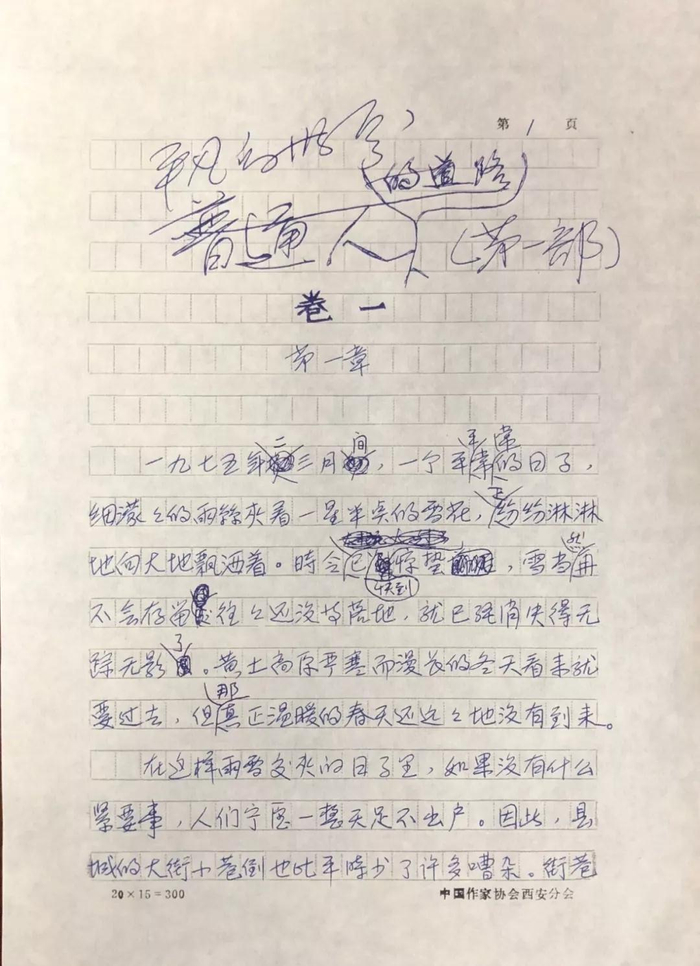 第1页
平凡的世界
的道路
普通人 (第一部)
卷一
第一章
一九七五年二三月间,一个平平常常的日子,
细濛々的雨絲夹着一星半点的雪花,正纷纷淋淋
地向大地飘洒着。時令已快到惊蛰,雪当然再
不会存留,往々还没等落地,就已经消失得无
踪无影了。黄土高原严寒而漫长的冬天看来就
要过去,但那真正温暖的春天还远々地没有到来。
在这样雨雪交夹的日子里,如果没有什么
紧要事,人们宁愿一整天足不出户。因此,县
城的大街小巷倒也比平時少了许多嘈杂。街巷
20×15=300 中国作家协会西安分会